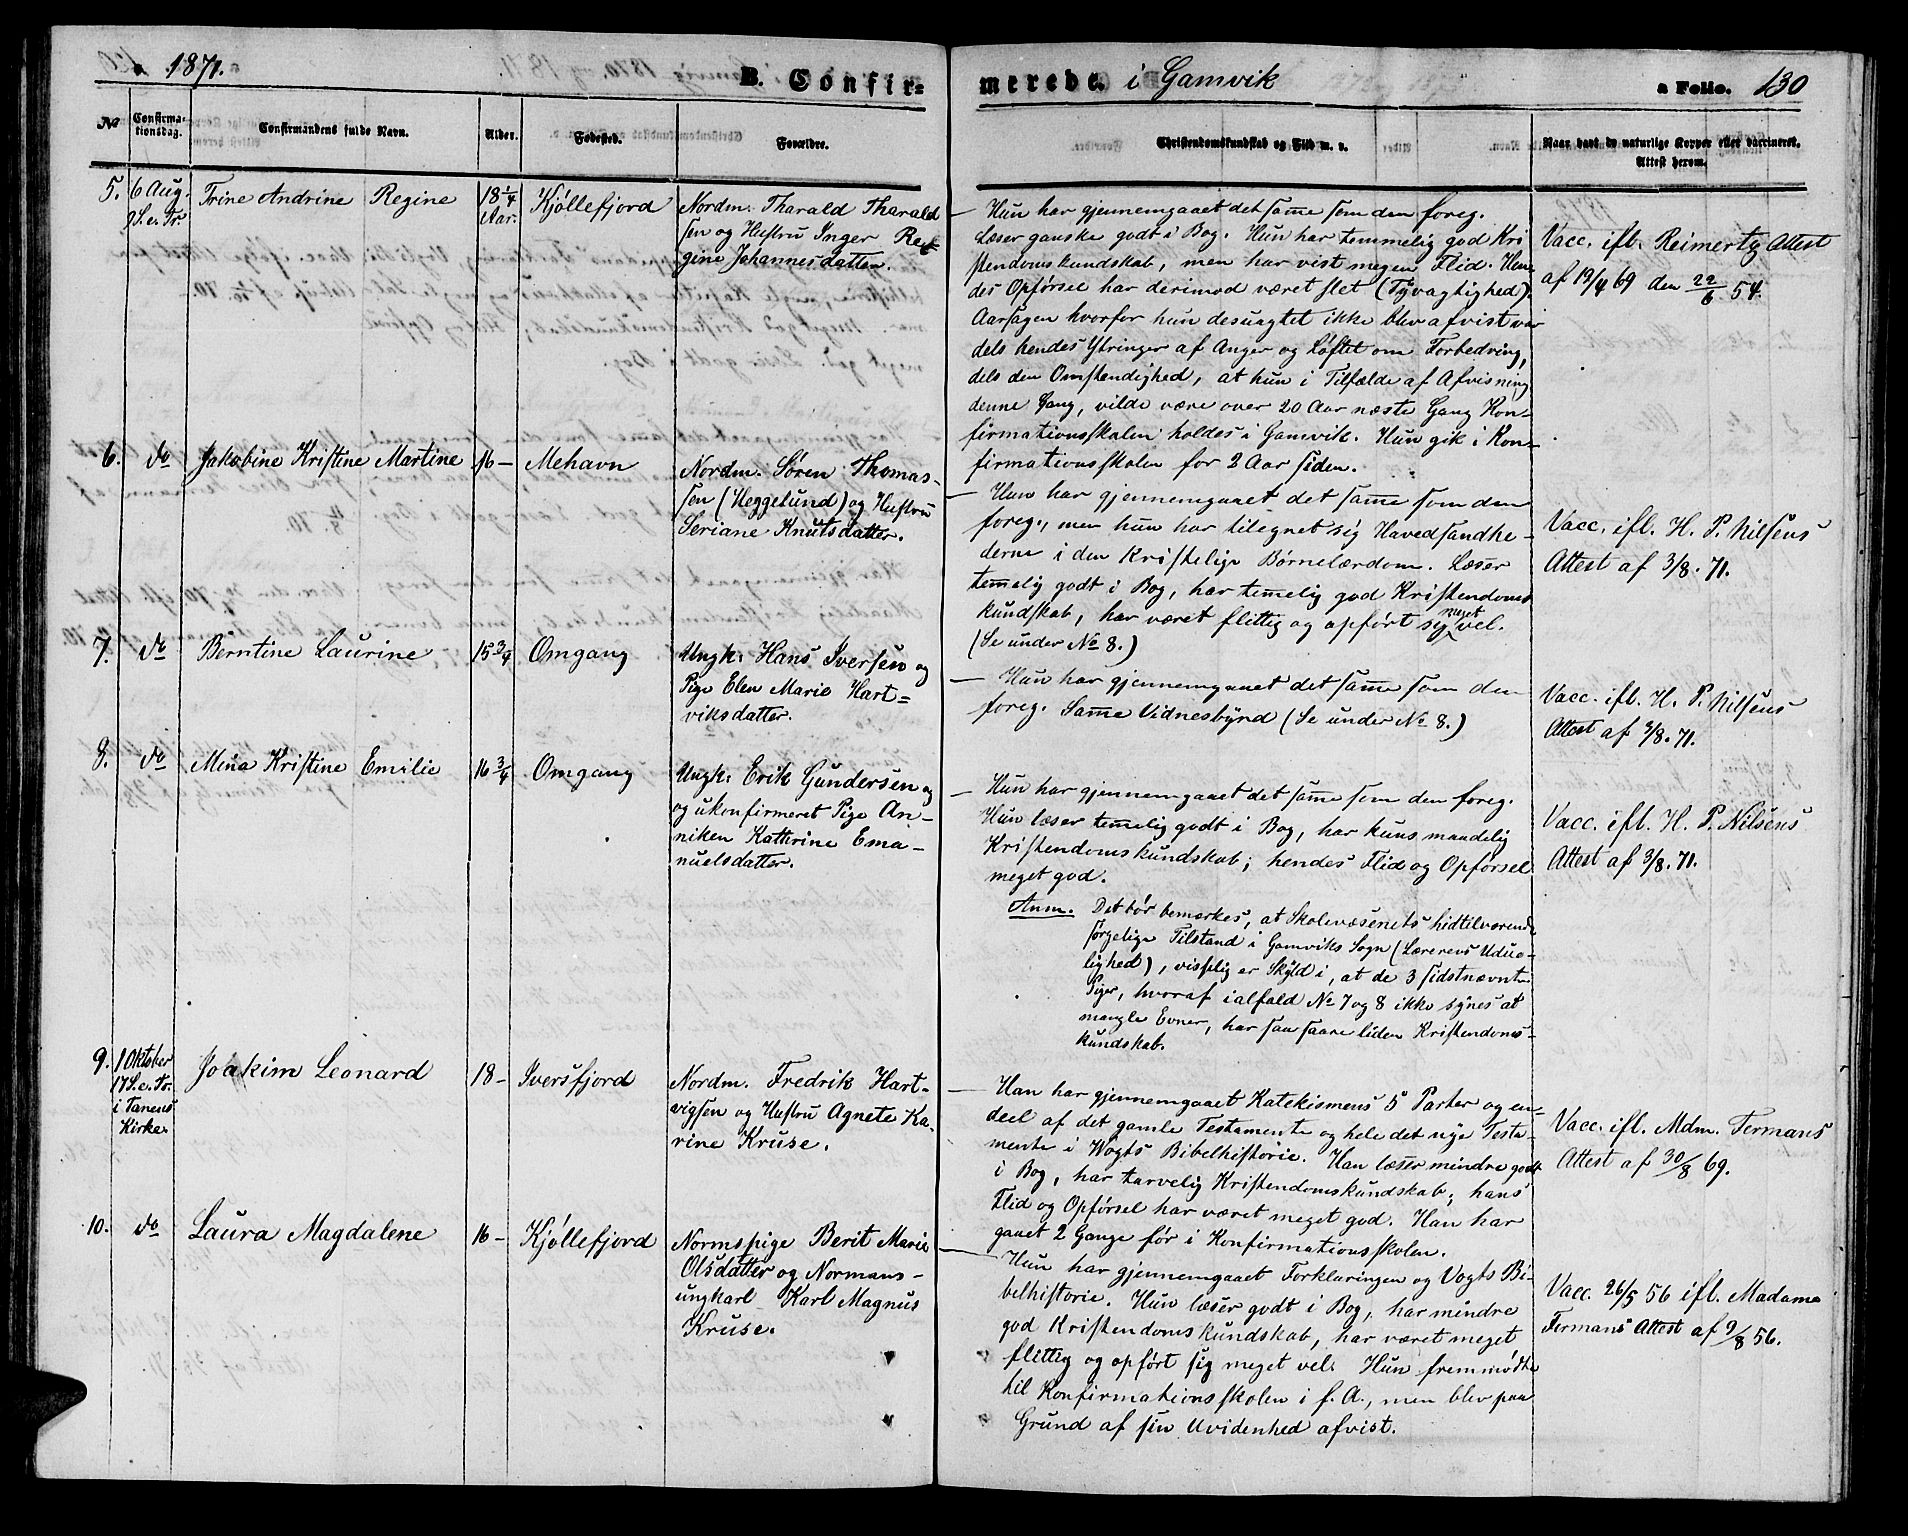 1871.
B. Confir=
merede. i Gamvik
a Folio. 130
No
Confirma-
tionsdag.
Confirmandens fulde Navn.
Alder.
Fødested.
Forældre.
Christendomskundskab og Flid m. v.
Naar havt de naturlige Kopper eller vaccineret.
Attest herom.
5.
6 Aug.
9 S. e. Tr.
Trine Andrine Regine
18 1/4
Aar.
Kjøllefjord
Nordm. Tharald Tharald
sen og Hustru Inger Re
gine Johannesdatter.
— Hun har gjennemgaaet det samme som den foreg.
Læser ganske godt i Bog. Hun har temmelig god Kri
stendomskundskab, men har vist megen Flid. Hen
des Opførsel har derimod været slet (Tyvagtighed).
Aarsagen hvorfor hun desuagtet ikke blev afvist var
dels hendes Ytringer af Anger og Løftet om Forbedring,
dels den Omstendighed, at hun i Tilfælde af Afvisning
denne Gang, vilde være over 20 Aar næste Gang Kon-
firmationsskolen holdes i Gamvik. Hun gik i Kon-
firmationsskolen for 2 Aar siden.
Vacc. ifl. Reimertz Attest
af 19/4 69 den 22/6 54.
6.
do
Jakobine Kristine Martine
16 —
Mehavn
Nordm. Søren Thomas-
sen (Heggelund) og Hustru
Seriane Knutsdatter.
— Hun har gjennemgaaet det samme som den
foreg., men hun har tilegnet sig Hovedsandhe-
derne i den kristelige Børnelærdom. Læser
temmelig godt i Bog, har temmelig god Kristendoms
kundskab, har været flittig og opført sig meget vel.
(Se under No 8.)
Vacc. ifl. H. P. Nilsens
Attest af 3/8. 71.
7.
do
Berntine Laurine
15 3/4
Omgang
Ungk. Hans Iversen og
Pige Elen Marie Hart=
viksdatter.
— Hun har gjennemgaaet det samme som den
foreg. Samme Vidnesbyrd (Se under No 8.)
Vacc. ifl. H. P. Nilsens
Attest af 3/8. 71.
8.
do
Mina Kristine Emilie
16 3/4
Omgang
Ungk. Erik Gundersen og
og ukonfirmeret Pige An-
niken Kathrine Ema-
nuelsdatter.
— Hun har gjennemgaaet det samme som den foreg.
Hun læser temmelig godt i Bog, har kuns maadelig
Kristendomskundskab; hendes Flid og Opførsel
meget god.
Anm. Det bør bemærkes, at Skolevæsenets hidtilværende
sørgelige Tilstand i Gamviks Sogn (Lærerens Udue-
lighed), visselig er Skyld i, at de 3 sidstnævnte
Piger, hvoraf ialfald No 7 og 8 ikke synes at
mangle Evner, har saa saare liden Kristendoms-
kundskab.
Vacc. ifl. H. P. Nilsens
Attest af 3/8. 71.
9.
1 Oktober
17 S. e. Tr.
i Tanens
Kirke.
Joakim Leonard
18 —
Iversfjord
Nordm. Fredrik Hart-
vigsen og Hustru Agnete Ka-
rine Kruse.
— Han har gjennemgaaet Katekismens 5 Parter og en-
deel af det gamle Testamente og hele det nye Testa-
mente i Wogts Bibelhistorie. Han læser mindre godt
i Bog, har tarvelig Kristendomskundskab; hans
Flid og Opførsel har været meget god. Han har
gaaet 2 Gange før i Konfirmationsskolen.
Vacc. ifl. Mdm. Fermans
Attest af 30/8 69.
10.
do
Laura Magdalene
16 —
Kjøllefjord
Normspige Berit Marie
Olsdatter og Normans-
ungkarl Karl Magnus
Kruse.
— Hun har gjennemgaaet Forklaringen og Vogts Bi-
belhistorie. Hun læser godt i Bog, har mindre
god Kristendomskundskab, har været meget
flittig og opført sig meget vel. Hun fremmødte
til Konfirmationsskolen i f. A., men blev paa
Grund af sin Uvidenhed afvist.
Vacc. 26/5 56 ifl. Madame
Fermans Attest af 9/8 56.